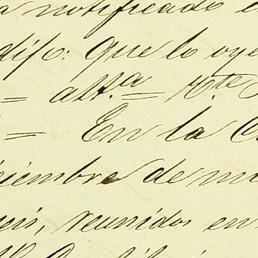 a notificado e
dijo: que lo oye
= att.ª = R.te
= En la C
iciembre de mi
uis, reunidos en